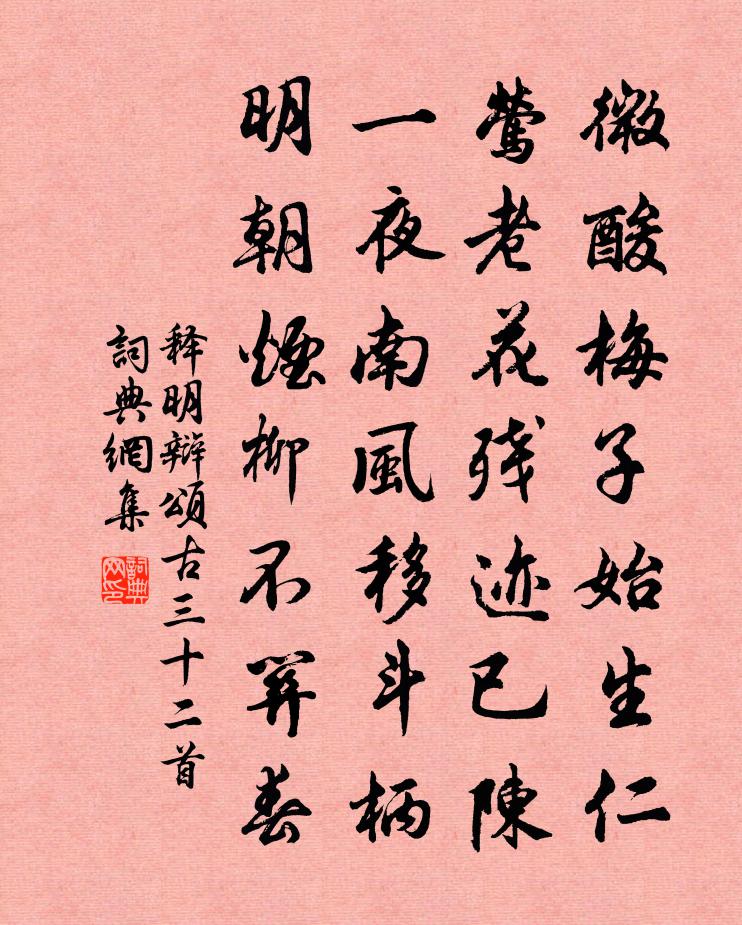 微酸梅子始生仁
鶯老花残迹已陳
一夜南風移斗柄
明朝煙柳不算春
释明辯頌古三十二首
詞典網集
詞典网印